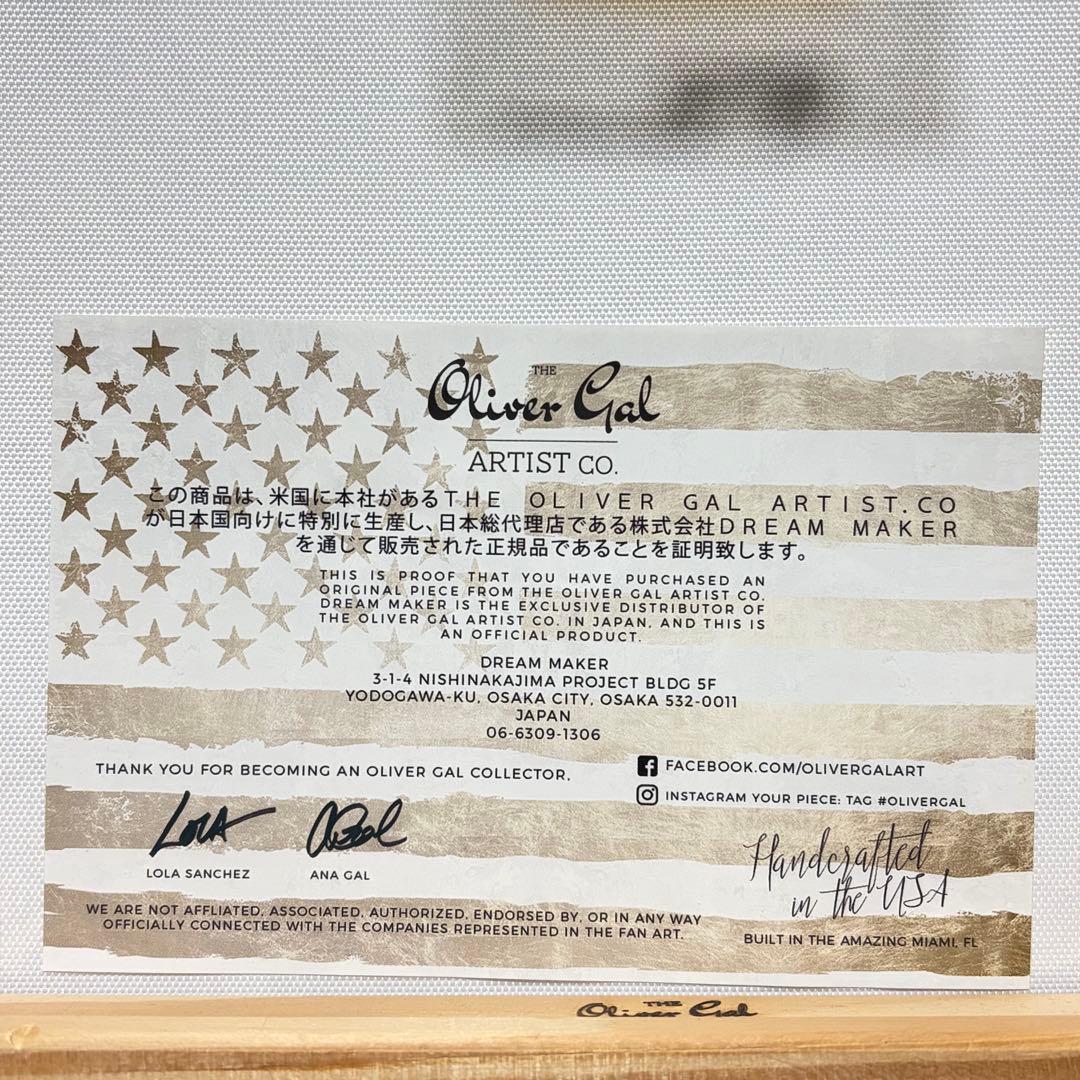 THE
Oliver Gal
ARTIST CO.
この商品は、米国に本社があるTHE OLIVER GAL ARTIST.CO
が日本国向けに特別に生産し、日本総代理店である株式会社DREAM MAKER
を通じて販売された正規品であることを証明致します。
THIS IS PROOF THAT YOU HAVE PURCHASED AN
ORIGINAL PIECE FROM THE OLIVER GAL ARTIST CO.
DREAM MAKER IS THE EXCLUSIVE DISTRIBUTOR OF
THE OLIVER GAL ARTIST CO. IN JAPAN, AND THIS IS
AN OFFICIAL PRODUCT.
DREAM MAKER
3-1-4 NISHINAKAJIMA PROJECT BLDG 5F
YODOGAWA-KU, OSAKA CITY, OSAKA 532-0011
JAPAN
06-6309-1306
THANK YOU FOR BECOMING AN OLIVER GAL COLLECTOR.
FACEBOOK.COM/OLIVERGALART
INSTAGRAM YOUR PIECE: TAG #OLIVERGAL
LOLA
LOLA SANCHEZ
ANA GAL
Handcrafted
in the USA
WE ARE NOT AFFLIATED, ASSOCIATED, AUTHORIZED, ENDORSED BY, OR IN ANY WAY
OFFICIALLY CONNECTED WITH THE COMPANIES REPRESENTED IN THE FAN ART.
BUILT IN THE AMAZING MIAMI, FL
THE
Oliver Gal